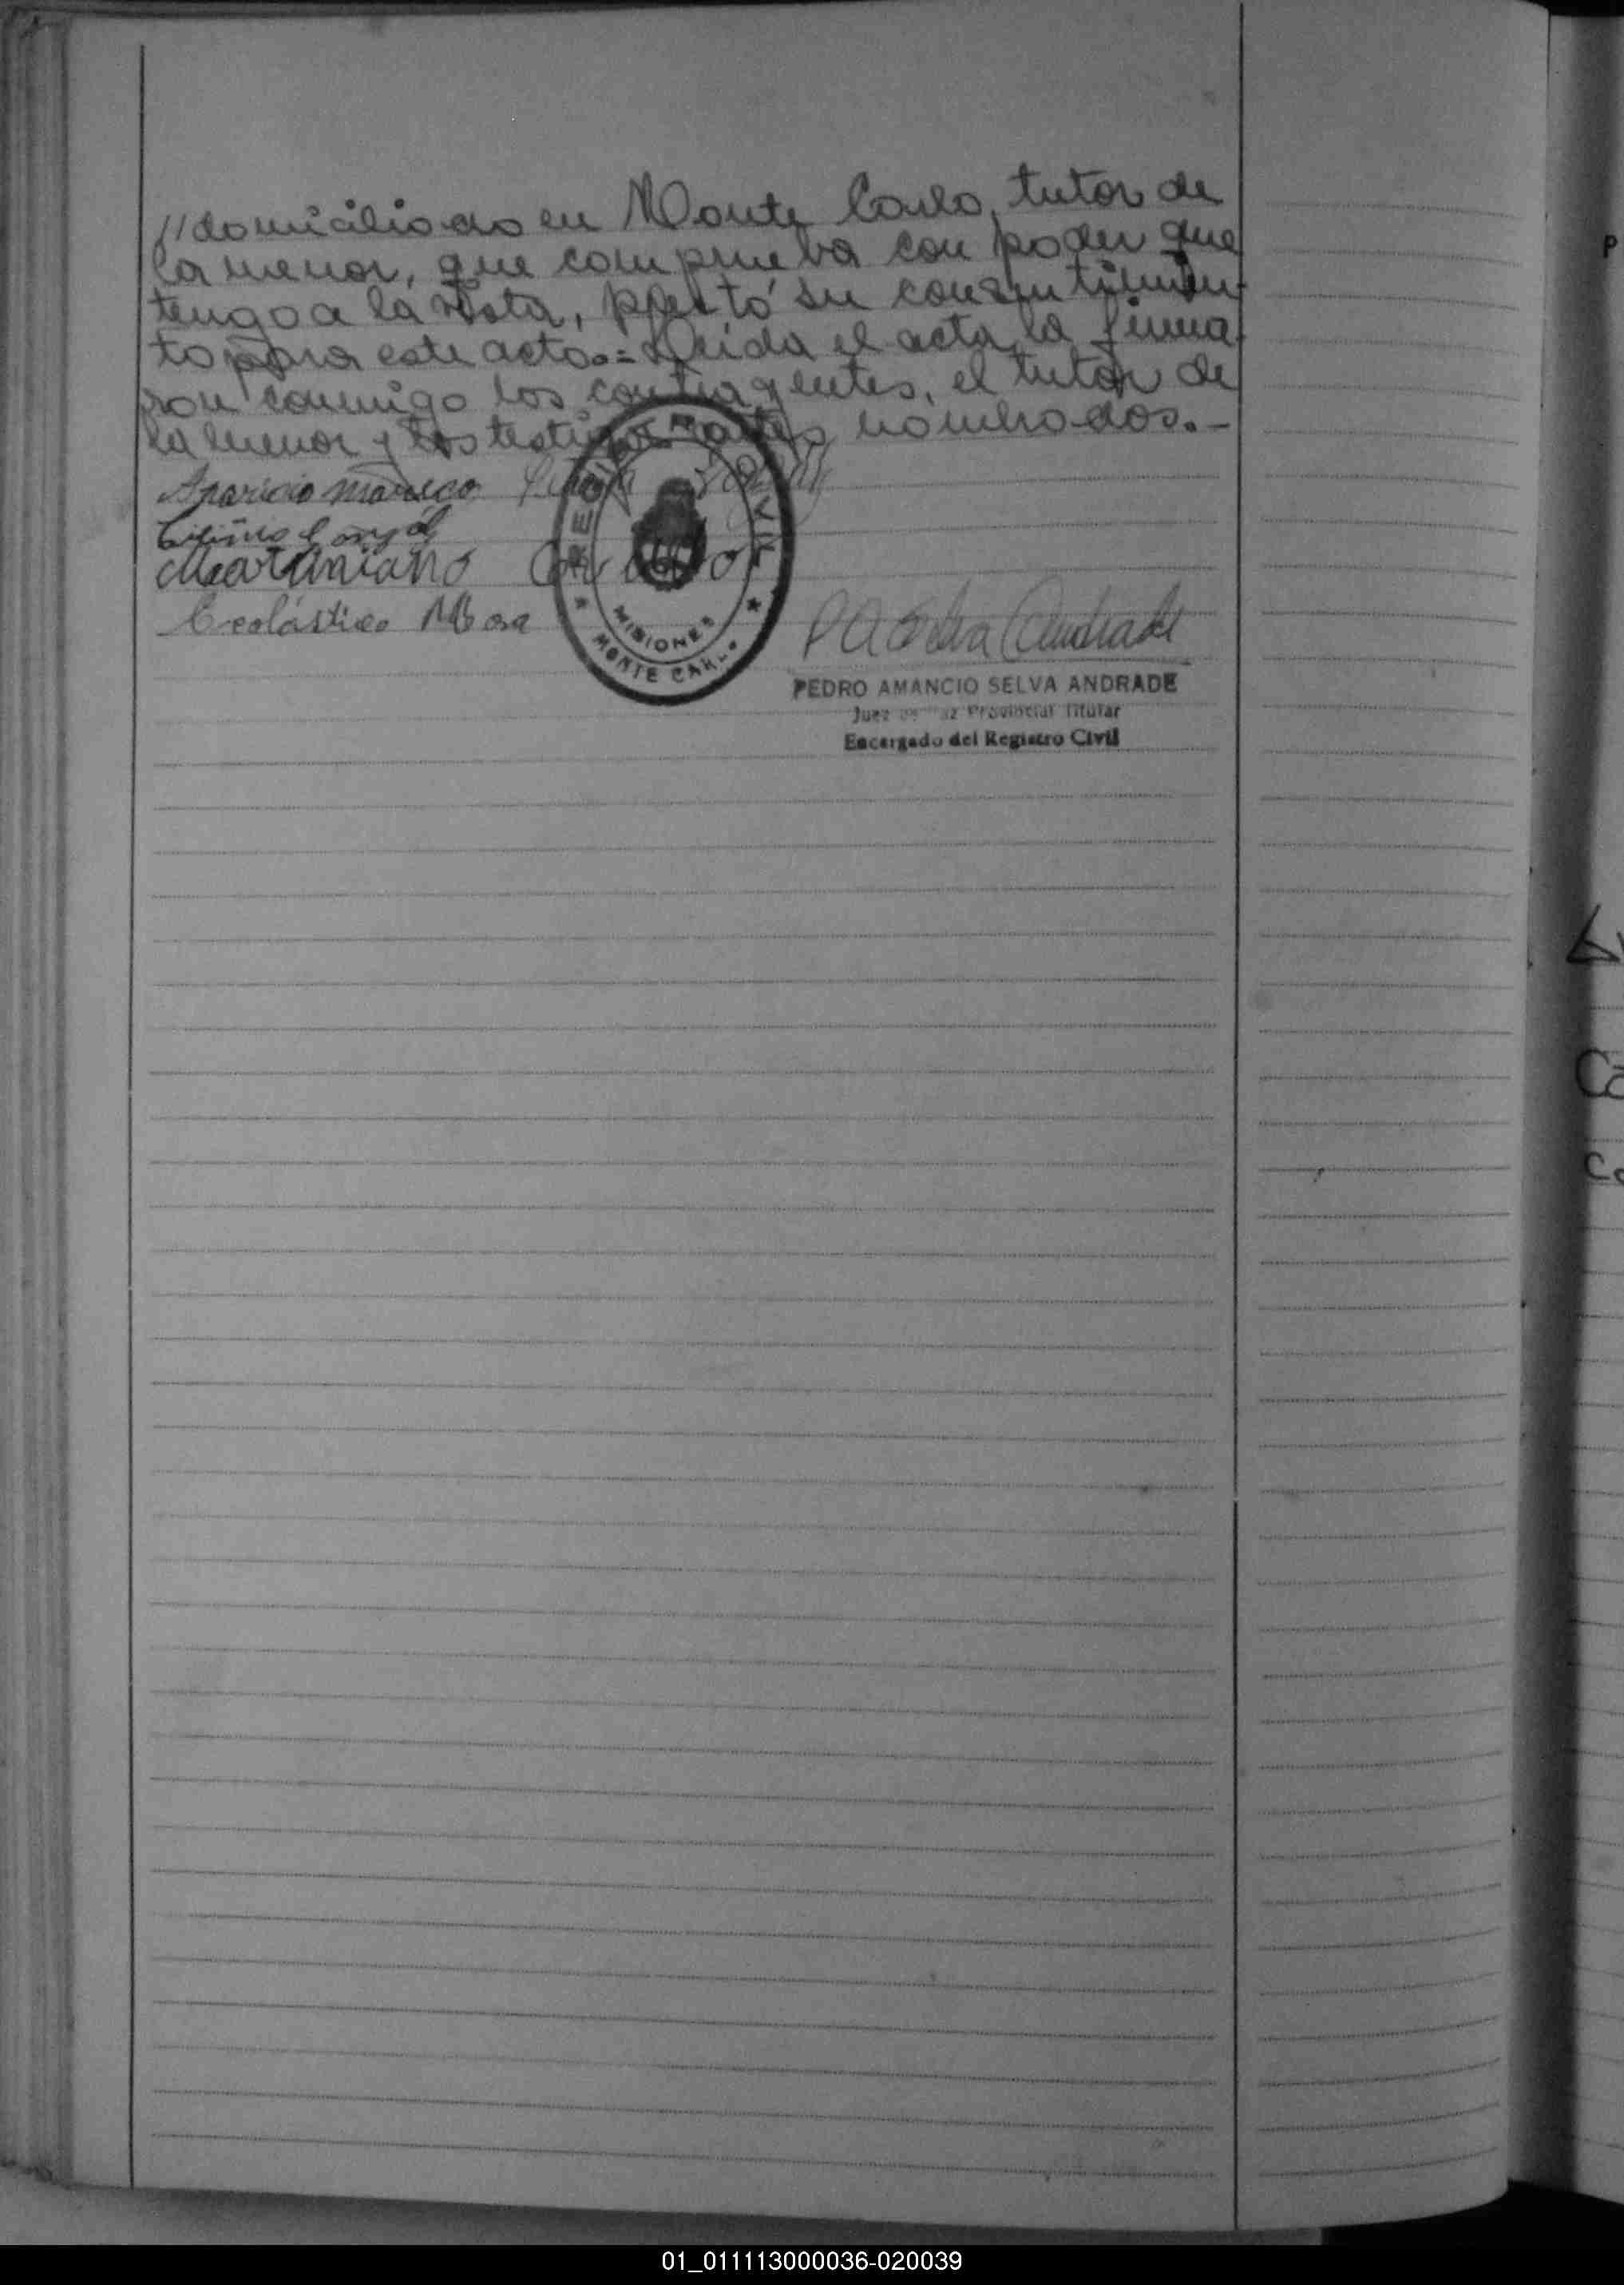 //domiciliado en Monte Carlo, tutor de
la menor, que comprueba con poder que
tengo a la vista, prestó su consentimien-
to para este acto.= Leida el acta, la firma-
ron conmigo los contrayentes, el tutor de
la menor y los testigos antes nombrados.-
Aparicio
Martiniano
Escolástico Mora
REGISTRO CIVIL
MISIONES
MONTE CARLO
PASelva Andrade
PEDRO AMANCIO SELVA ANDRADE
Juez de Paz Provincial Titular
Encargado del Registro Civil
P
01_011113000036-020039